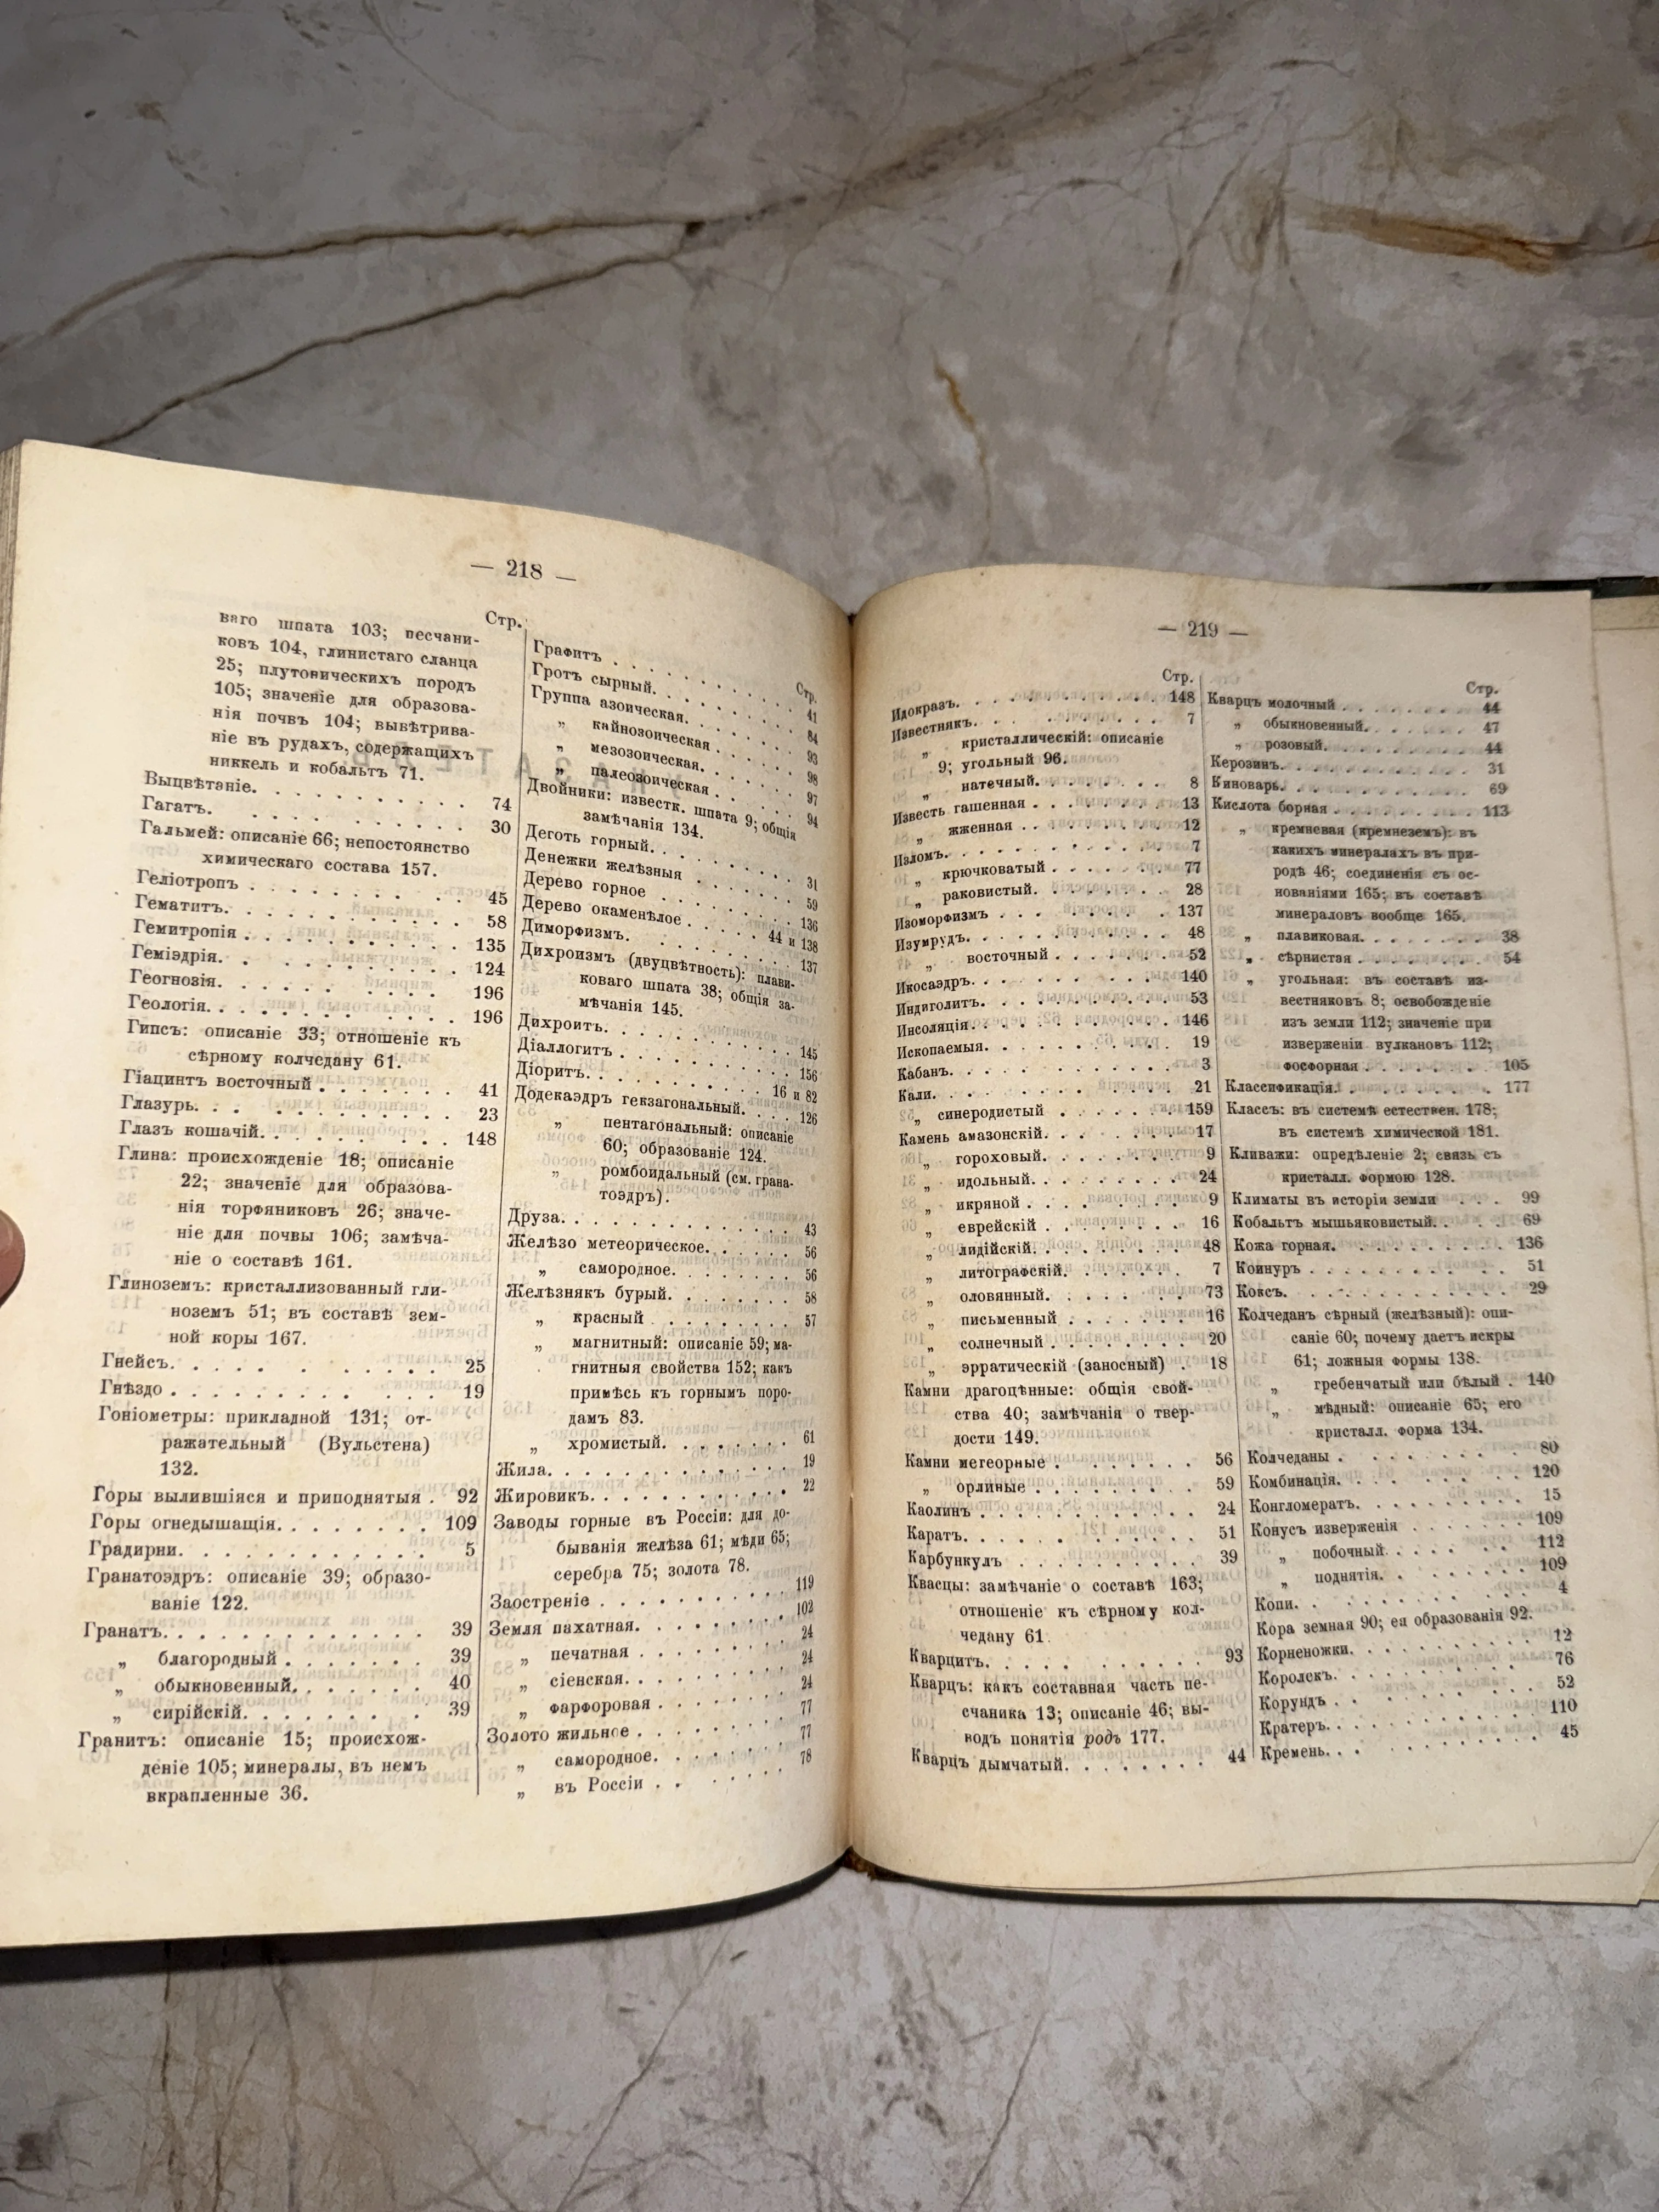 — 218 —
Стр.
ваго шпата 103; песчани-
ковъ 104, глинистаго сланца
25; плутоническихъ породъ
105; значеніе для образова-
нія почвъ 104; вывѣтрива-
ніе въ рудахъ, содержащихъ
никкель и кобальтъ 71.
Выцвѣтаніе. . . . . . . . . . . 74
Гагатъ. . . . . . . . . . . 30
Гальмей: описаніе 66; непостоянство
химическаго состава 157.
Геліотропъ . . . . . . . . . . 45
Гематитъ. . . . . . . . . . . 58
Гемитропія . . . . . . . . . . . 135
Геміэдрія. . . . . . . . . . . 124
Геогнозія. . . . . . . . . . . 196
Геологія. . . . . . . . . . . 196
Гипсъ: описаніе 33; отношеніе къ
сѣрному колчедану 61.
Гіацинтъ восточный . . . . . . . 41
Глазурь. . . . . . . . . . . 23
Глазъ кошачій. . . . . . . . . . 148
Глина: происхожденіе 18; описаніе
22; значеніе для образова-
нія торфяниковъ 26; значе-
ніе для почвы 106; замѣча-
ніе о составѣ 161.
Глиноземъ: кристаллизованный гли-
ноземъ 51; въ составѣ зем-
ной коры 167.
Гнейсъ. . . . . . . . . . . 25
Гнѣздо . . . . . . . . . . . 19
Гоніометры: прикладной 131; от-
ражательный (Вульстена)
132.
Горы вылившіяся и приподнятыя . 92
Горы огнедышащія. . . . . . . . 109
Градирни. . . . . . . . . . . 5
Гранатоэдръ: описаніе 39; образо-
ваніе 122.
Гранатъ. . . . . . . . . . . . 39
„ благородный . . . . . . . 39
„ обыкновенный. . . . . . . 40
„ сирійскій. . . . . . . . 39
Гранитъ: описаніе 15; происхож-
деніе 105; минералы, въ немъ
вкрапленные 36.
Стр.
Графитъ . . . . . . . . . . 41
Гротъ сырный. . . . . . . . . 84
Группа азоическая. . . . . . . 93
„ кайнозоическая . . . . . . 98
„ мезозоическая. . . . . . . 97
„ палеозоическая . . . . . . 94
Двойники: известк. шпата 9; общія
замѣчанія 134.
Деготь горный. . . . . . . . . 31
Денежки желѣзныя . . . . . . . 59
Дерево горное . . . . . . . . . 136
Дерево окаменѣлое . . . . . 44 и 138
Диморфизмъ. . . . . . . . . . 137
Дихроизмъ (двуцвѣтность): плави-
коваго шпата 38; общія за-
мѣчанія 145.
Дихроитъ. . . . . . . . . . . 145
Діаллогитъ . . . . . . . . . . 156
Діоритъ. . . . . . . . . . 16 и 82
Додекаэдръ гекзагональный. . . . 126
„ пентагональный: описаніе
60; образованіе 124.
„ ромбоидальный (см. грана-
тоэдръ).
Друза. . . . . . . . . . . . 43
Желѣзо метеорическое. . . . . . 56
„ самородное. . . . . . . . 56
Желѣзнякъ бурый. . . . . . . . 58
„ красный . . . . . . . . . 57
„ магнитный: описаніе 59; ма-
гнитныя свойства 152; какъ
примѣсь къ горнымъ поро-
дамъ 83.
„ хромистый. . . . . . . . 61
Жила. . . . . . . . . . . . 19
Жировикъ. . . . . . . . . . . 22
Заводы горные въ Россіи: для до-
быванія желѣза 61; мѣди 65;
серебра 75; золота 78.
Заостреніе . . . . . . . . . . 119
Земля пахатная. . . . . . . . . 102
„ печатная . . . . . . . . . 24
„ сіенская. . . . . . . . . 24
„ фарфоровая . . . . . . . . 24
Золото жильное . . . . . . . . 77
„ самородное. . . . . . . . 77
„ въ Россіи . . . . . . . . 78
— 219 —
Стр.
Идокразъ. . . . . . . . . . . 148
Известнякъ. . . . . . . . . . 7
„ кристаллическій: описаніе
9; угольный 96.
„ натечный. . . . . . . . . 8
Известь гашенная . . . . . . . . 13
„ жженная . . . . . . . . . 12
Изломъ. . . . . . . . . . . . 7
„ крючковатый . . . . . . . . 77
„ раковистый. . . . . . . . . 28
Изоморфизмъ . . . . . . . . . . 137
Изумрудъ. . . . . . . . . . . 48
„ восточный . . . . . . . . 52
Икосаэдръ. . . . . . . . . . . 140
Индиголитъ. . . . . . . . . . 53
Инсоляція. . . . . . . . . . . 146
Ископаемыя. . . . . . . . . . 19
Кабанъ. . . . . . . . . . . . 3
Кали. . . . . . . . . . . . 21
„ синеродистый . . . . . . . 159
Камень амазонскій. . . . . . . . 17
„ гороховый. . . . . . . . . 9
„ идольный. . . . . . . . . 24
„ икряной . . . . . . . . . 9
„ еврейскій . . . . . . . . 16
„ лидійскій. . . . . . . . . 48
„ литографскій. . . . . . . 7
„ оловянный. . . . . . . . 73
„ письменный . . . . . . . . 16
„ солнечный . . . . . . . . 20
„ эрратическій (заносный) . 18
Камни драгоцѣнные: общія свой-
ства 40; замѣчанія о твер-
дости 149.
Камни метеорные . . . . . . . . 56
„ орлиные . . . . . . . . . 59
Каолинъ . . . . . . . . . . . 24
Каратъ. . . . . . . . . . . . 51
Карбункулъ . . . . . . . . . . 39
Квасцы: замѣчаніе о составѣ 163;
отношеніе къ сѣрному кол-
чедану 61.
Кварцитъ. . . . . . . . . . . 93
Кварцъ: какъ составная часть пе-
счаника 13; описаніе 46; вы-
водъ понятія родъ 177.
Кварцъ дымчатый. . . . . . . . 44
Стр.
Кварцъ молочный . . . . . . . . 44
„ обыкновенный. . . . . . . 47
„ розовый. . . . . . . . . 44
Керозинъ. . . . . . . . . . . 31
Киноварь. . . . . . . . . . . 69
Кислота борная . . . . . . . . . 113
„ кремневая (кремнеземъ): въ
какихъ минералахъ въ при-
родѣ 46; соединенія съ ос-
нованіями 165; въ составѣ
минераловъ вообще 165.
„ плавиковая. . . . . . . . 38
„ сѣрнистая . . . . . . . . 54
„ угольная: въ составѣ из-
вестняковъ 8; освобожденіе
изъ земли 112; значеніе при
изверженіи вулкановъ 112;
фосфорная . . . . . . . . 105
Классификація. . . . . . . . . 177
Классъ: въ системѣ естествен. 178;
въ системѣ химической 181.
Кливажи: опредѣленіе 2; связь съ
кристалл. формою 128.
Климаты въ исторіи земли . . . 99
Кобальтъ мышьяковистый. . . . . 69
Кожа горная. . . . . . . . . . 136
Коинуръ . . . . . . . . . . . 51
Коксъ. . . . . . . . . . . . 29
Колчеданъ сѣрный (желѣзный): опи-
саніе 60; почему даетъ искры
61; ложныя формы 138.
„ гребенчатый или бѣлый . 140
„ мѣдный: описаніе 65; его
кристалл. форма 134.
Колчеданы . . . . . . . . . . 80
Комбинація. . . . . . . . . . 120
Конгломератъ. . . . . . . . . . 15
Конусъ изверженія . . . . . . . 109
„ побочный. . . . . . . . . 112
„ поднятія. . . . . . . . . 109
Копи. . . . . . . . . . . . 4
Кора земная 90; ея образованія 92.
Корненожки. . . . . . . . . . 12
Королекъ. . . . . . . . . . . 76
Корундъ . . . . . . . . . . . 52
Кратеръ. . . . . . . . . . . 110
Кремень. . . . . . . . . . . 45